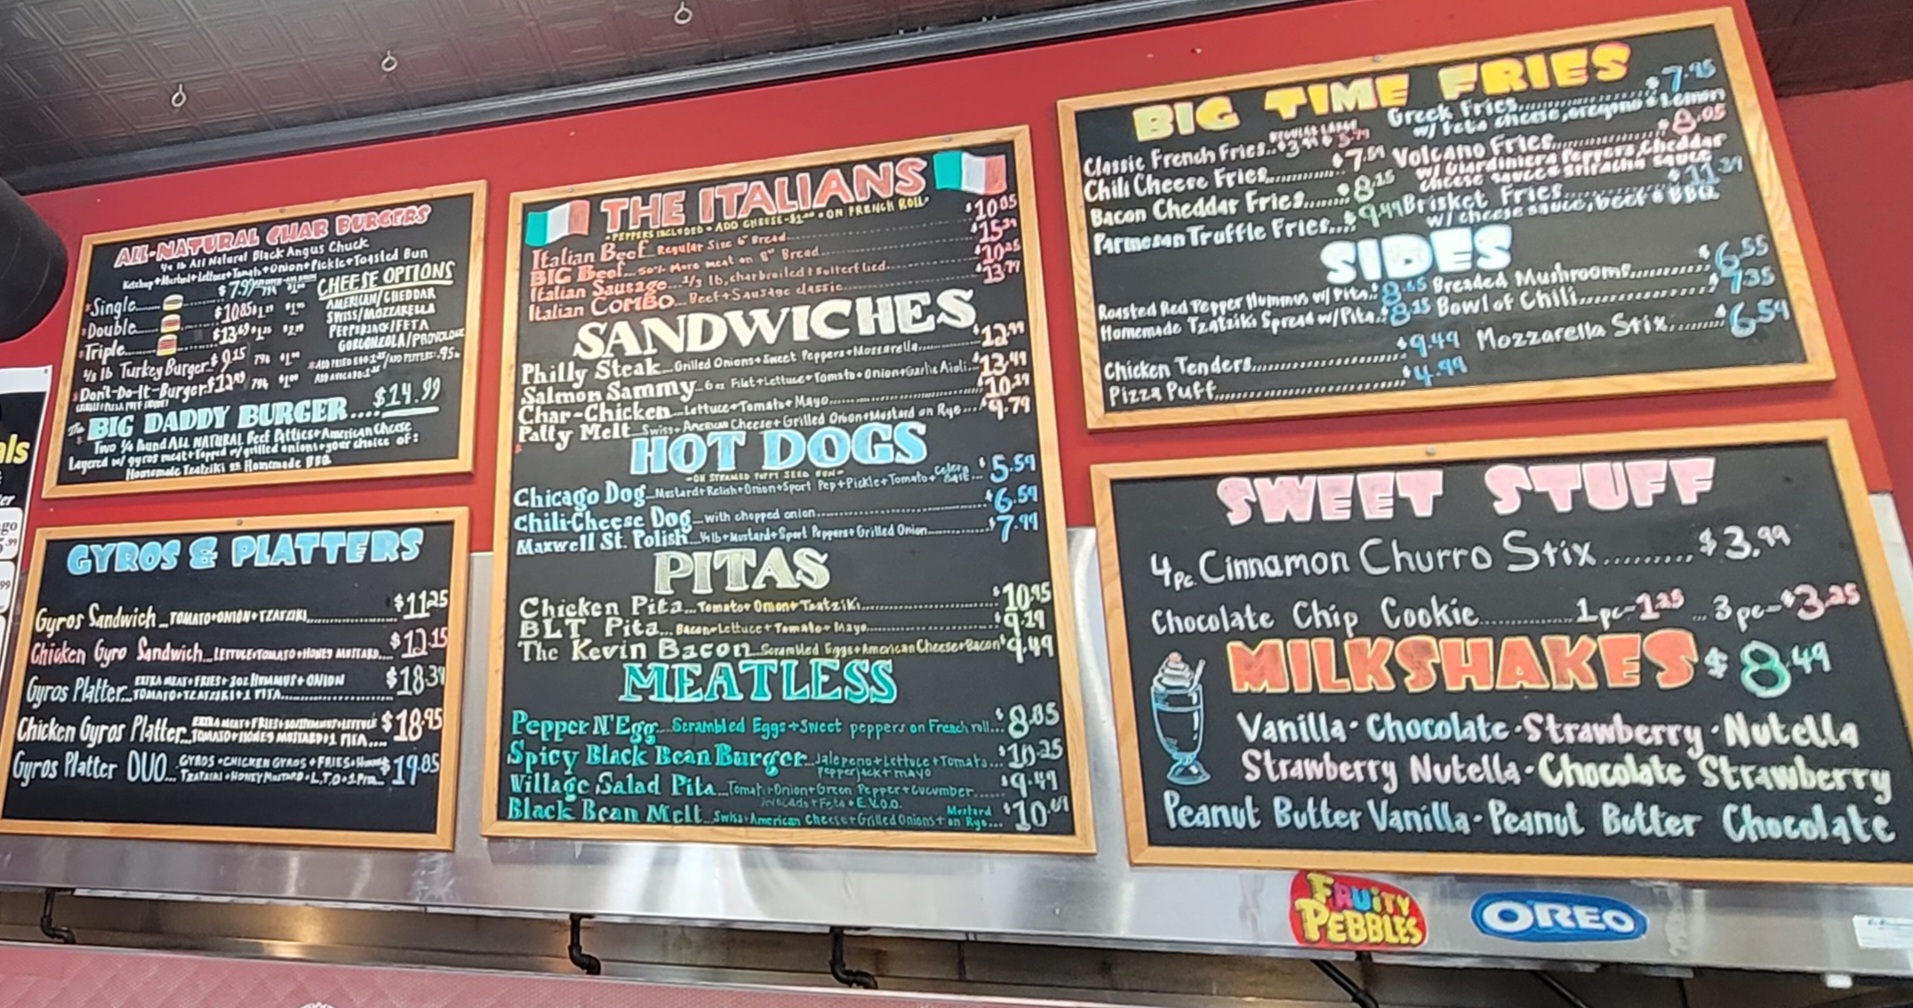 ALL-NATURAL CHAR BURGERS
1/4 lb All Natural Black Angus Chuck
Ketchup+Mustard+Lettuce+Tomato+Onion+Pickle+Toasted Bun
CHEESE OPTIONS
AMERICAN/CHEDDAR
SWISS/MOZZARELLA
PEPPERJACK/FETA
GORGONZOLA/PROVOLONE
Single... $7.99
Double... $10.85
Triple... $13.69
1/3 lb Turkey Burger.. $9.15
Don't-Do-It-Burger.
The BIG DADDY BURGER.... $14.99
Two 1/4 Pound ALL NATURAL Beef Patties+American Cheese
Layered w/ gyros meat+Topped w/grilled onions+your choice of:
Homemade Tzatziki or Homemade BBQ
GYROS & PLATTERS
Gyros Sandwich...TOMATO+ONION+TZATZIKI $11.25
Chicken Gyro Sandwich...LETTUCE+TOMATO+HONEY MUSTARD... $12.15
Gyros Platter... EXTRA MEAT+FRIES+3OZ HUMMUS+ONION $18.39
TOMATO+TZATZIKI+1 PITA
Chicken Gyros Platter... EXTRA MEAT+FRIES+3OZ HUMMUS+LETTUCE $18.95
TOMATO+HONEY MUSTARD+1 PITA...
Gyros Platter DUO... GYROS+CHICKEN GYROS+FRIES+ $19.85
TZATZIKI+HONEY MUSTARD+L.T.O+1 PITA...
THE ITALIANS
PEPPERS INCLUDED • ADD CHEESE • ON FRENCH ROLL
Italian Beef Regular Size 6" Bread $10.05
BIG Beef... 50% More meat on 8" Bread $15.39
Italian Sausage... 1/3 lb, charbroiled & Butterflied $10.25
Italian COMBO... Beef+Sausage classic $13.99
SANDWICHES
Philly Steak...Grilled Onions+Sweet Peppers+Mozzarella... $12.99
Salmon Sammy...6oz Filet+Lettuce+Tomato+Onion+Garlic Aioli. $13.49
Char-Chicken...Lettuce+Tomato+Mayo $10.29
Patty Melt...Swiss+American Cheese+Grilled Onion+Mustard on Rye... $9.79
HOT DOGS
-ON STEAMED POPPY SEED BUN-
Chicago Dog...Mustard+Relish+Onion+Sport Pep+Pickle+Tomato+Celery Salt... $5.59
Chili-Cheese Dog...with chopped onion $6.59
Maxwell St. Polish...1/4lb+Mustard+Sport Peppers+Grilled Onion $7.99
PITAS
Chicken Pita...Tomato+Onion+Tzatziki $10.95
BLT Pita...Bacon+Lettuce+Tomato+Mayo $9.29
The Kevin Bacon...Scrambled Eggs+American Cheese+Bacon $9.49
MEATLESS
Pepper N' Egg...Scrambled Eggs+Sweet peppers on French roll... $8.85
Spicy Black Bean Burger...Jalepeno+Lettuce+Tomato... $10.25
Pepperjack+mayo
Village Salad Pita...Tomato+Onion+Green Pepper+Cucumber $9.49
Avocado+Feta+E.V.O.O.
Black Bean Melt...Swiss+American Cheese+Grilled Onions+Mustard on Rye...
BIG TIME FRIES
REGULAR LARGE
Classic French Fries.. $3.99 $5.79
Chili Cheese Fries
Bacon Cheddar Fries $8.25
Parmesan Truffle Fries.... $9.49
Greek Fries $7.95
w/ Feta cheese, oregano & Lemon
Volcano Fries $8.05
w/ Giardiniera Peppers, Cheddar
cheese sauce & Sriracha Sauce
Brisket Fries $11.39
w/ cheese sauce, beef & BBQ
SIDES
Roasted Red Pepper Hummus w/ Pita.
Homemade Tzatziki Spread w/Pita. $8.25
Chicken Tenders $9.49
Pizza Puff $4.99
Breaded Mushrooms $6.55
Bowl of Chili $7.35
Mozzarella Stix $6.59
SWEET STUFF
4pc Cinnamon Churro Stix......... $3.99
Chocolate Chip Cookie 1pc-1.25 ... 3pc-$3.25
MILKSHAKES $8.49
Vanilla • Chocolate • Strawberry • Nutella
Strawberry Nutella • Chocolate Strawberry
Peanut Butter Vanilla • Peanut Butter Chocolate
FRUITY
PEBBLES
OREO